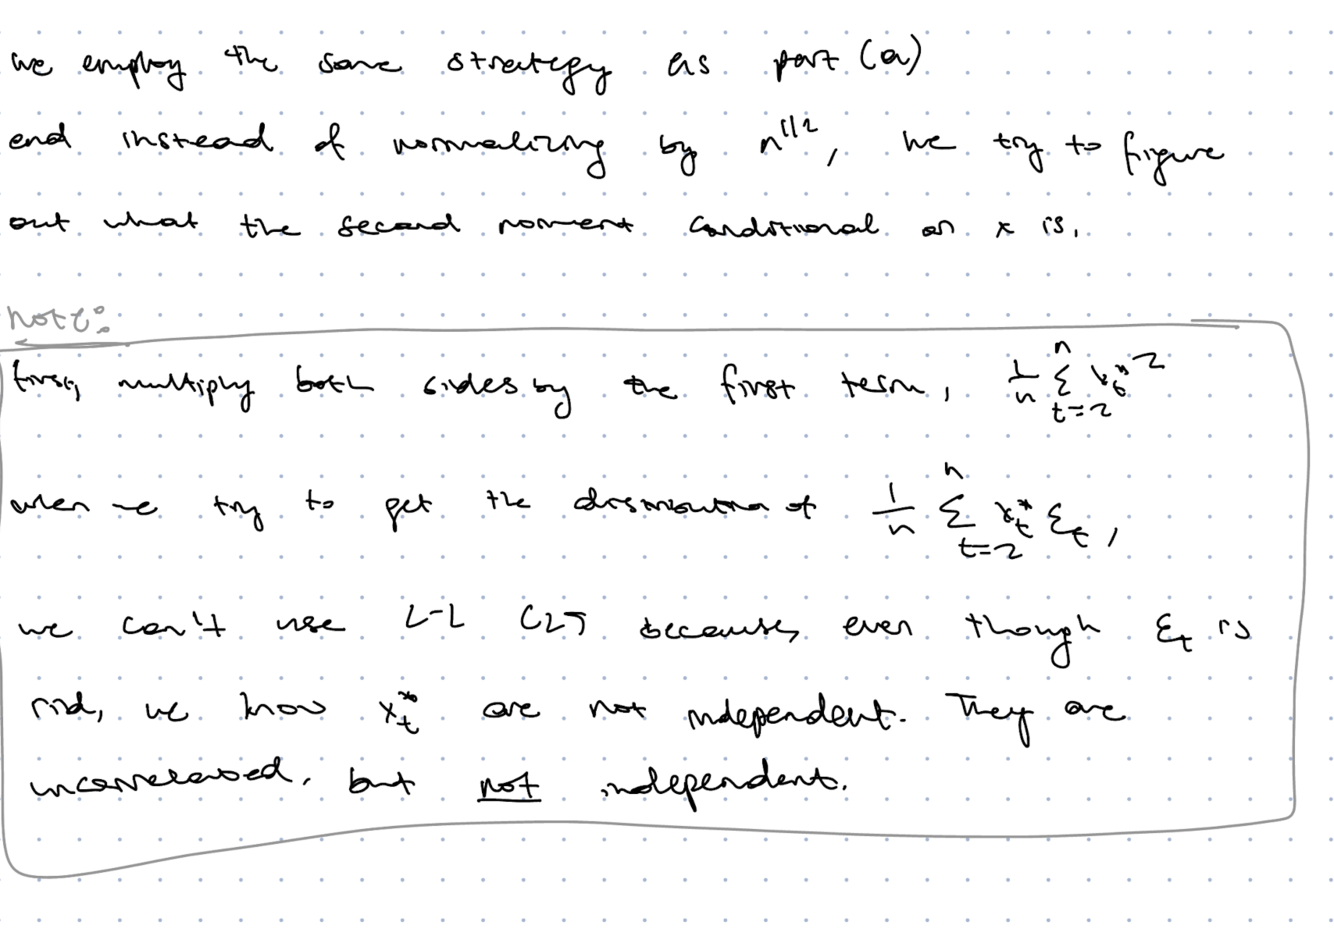 we employ the same strategy as part (a)
and instead of normalizing by n^{1/2}, we try to figure
out what the second moment conditional on x is.
note:
first, multiply both sides by the first term, \frac{1}{n} \sum_{t=2}^{n} x_t^{*2}
when we try to get the distribution of \frac{1}{n} \sum_{t=2}^{n} x_t^* ε_t,
we can't use L-L CLT because, even though ε_t is
iid, we know x_t^* are not independent. They are
uncorrelated, but not independent.